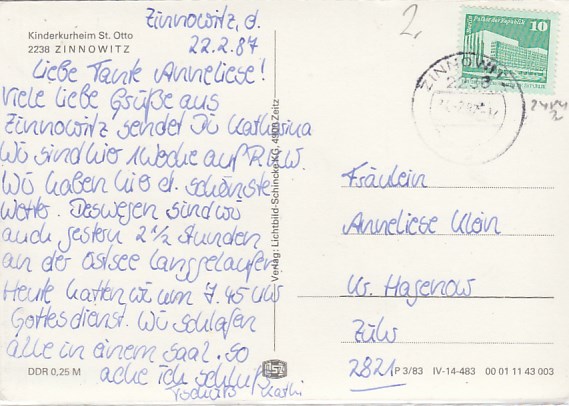 Kinderkurheim St. Otto
2238 ZINNOWITZ
Zinnowitz, d.
22.2.87
Liebe Tante Anneliese!
Viele liebe Grüße aus
Zinnowitz sendet Di Katharina
Wi sind hier 1 Woche auf R.K.W.
Wi haben hie d. schönste
Wetter. Deswegen sind wi
auch gestern 2 1/2 Stunden
an der Ostsee langgelaufen
Heute hatten wi um 7.45 Uhr
Gottesdienst. Wi schlafen
alle in einem Saal. So
ache ich schluß
Tschüß Kathi
DDR 0,25 M
Verlag: Lichtbild-Schincke KG, 4900 Zeitz
2.
10
Berlin, Palast der Republik
ZINNOWITZ
2238
Fräulein
Anneliese Klein
Kr. Hagenow
Zülw
2821
P 3/83 IV-14-483 00 01 11 43 003